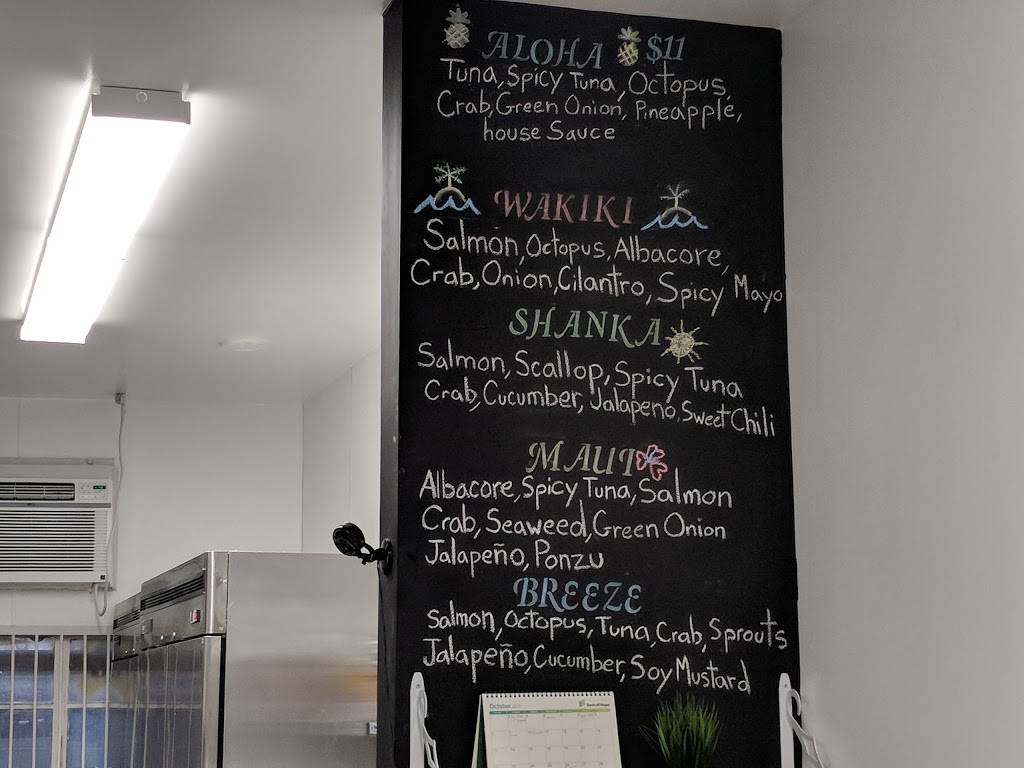 ALOHA $11
Tuna, Spicy Tuna, Octopus,
Crab, Green Onion, Pineapple,
house Sauce
WAKIKI
Salmon, Octopus, Albacore,
Crab, Onion, Cilantro, Spicy Mayo
SHANKA
Salmon, Scallop, Spicy Tuna
Crab, Cucumber, Jalapeno, Sweet Chili
MAUI
Albacore, Spicy Tuna, Salmon
Crab, Seaweed, Green Onion
Jalapeño, Ponzu
BREEZE
Salmon, Octopus, Tuna, Crab, Sprouts
Jalapeño, Cucumber, Soy Mustard
October